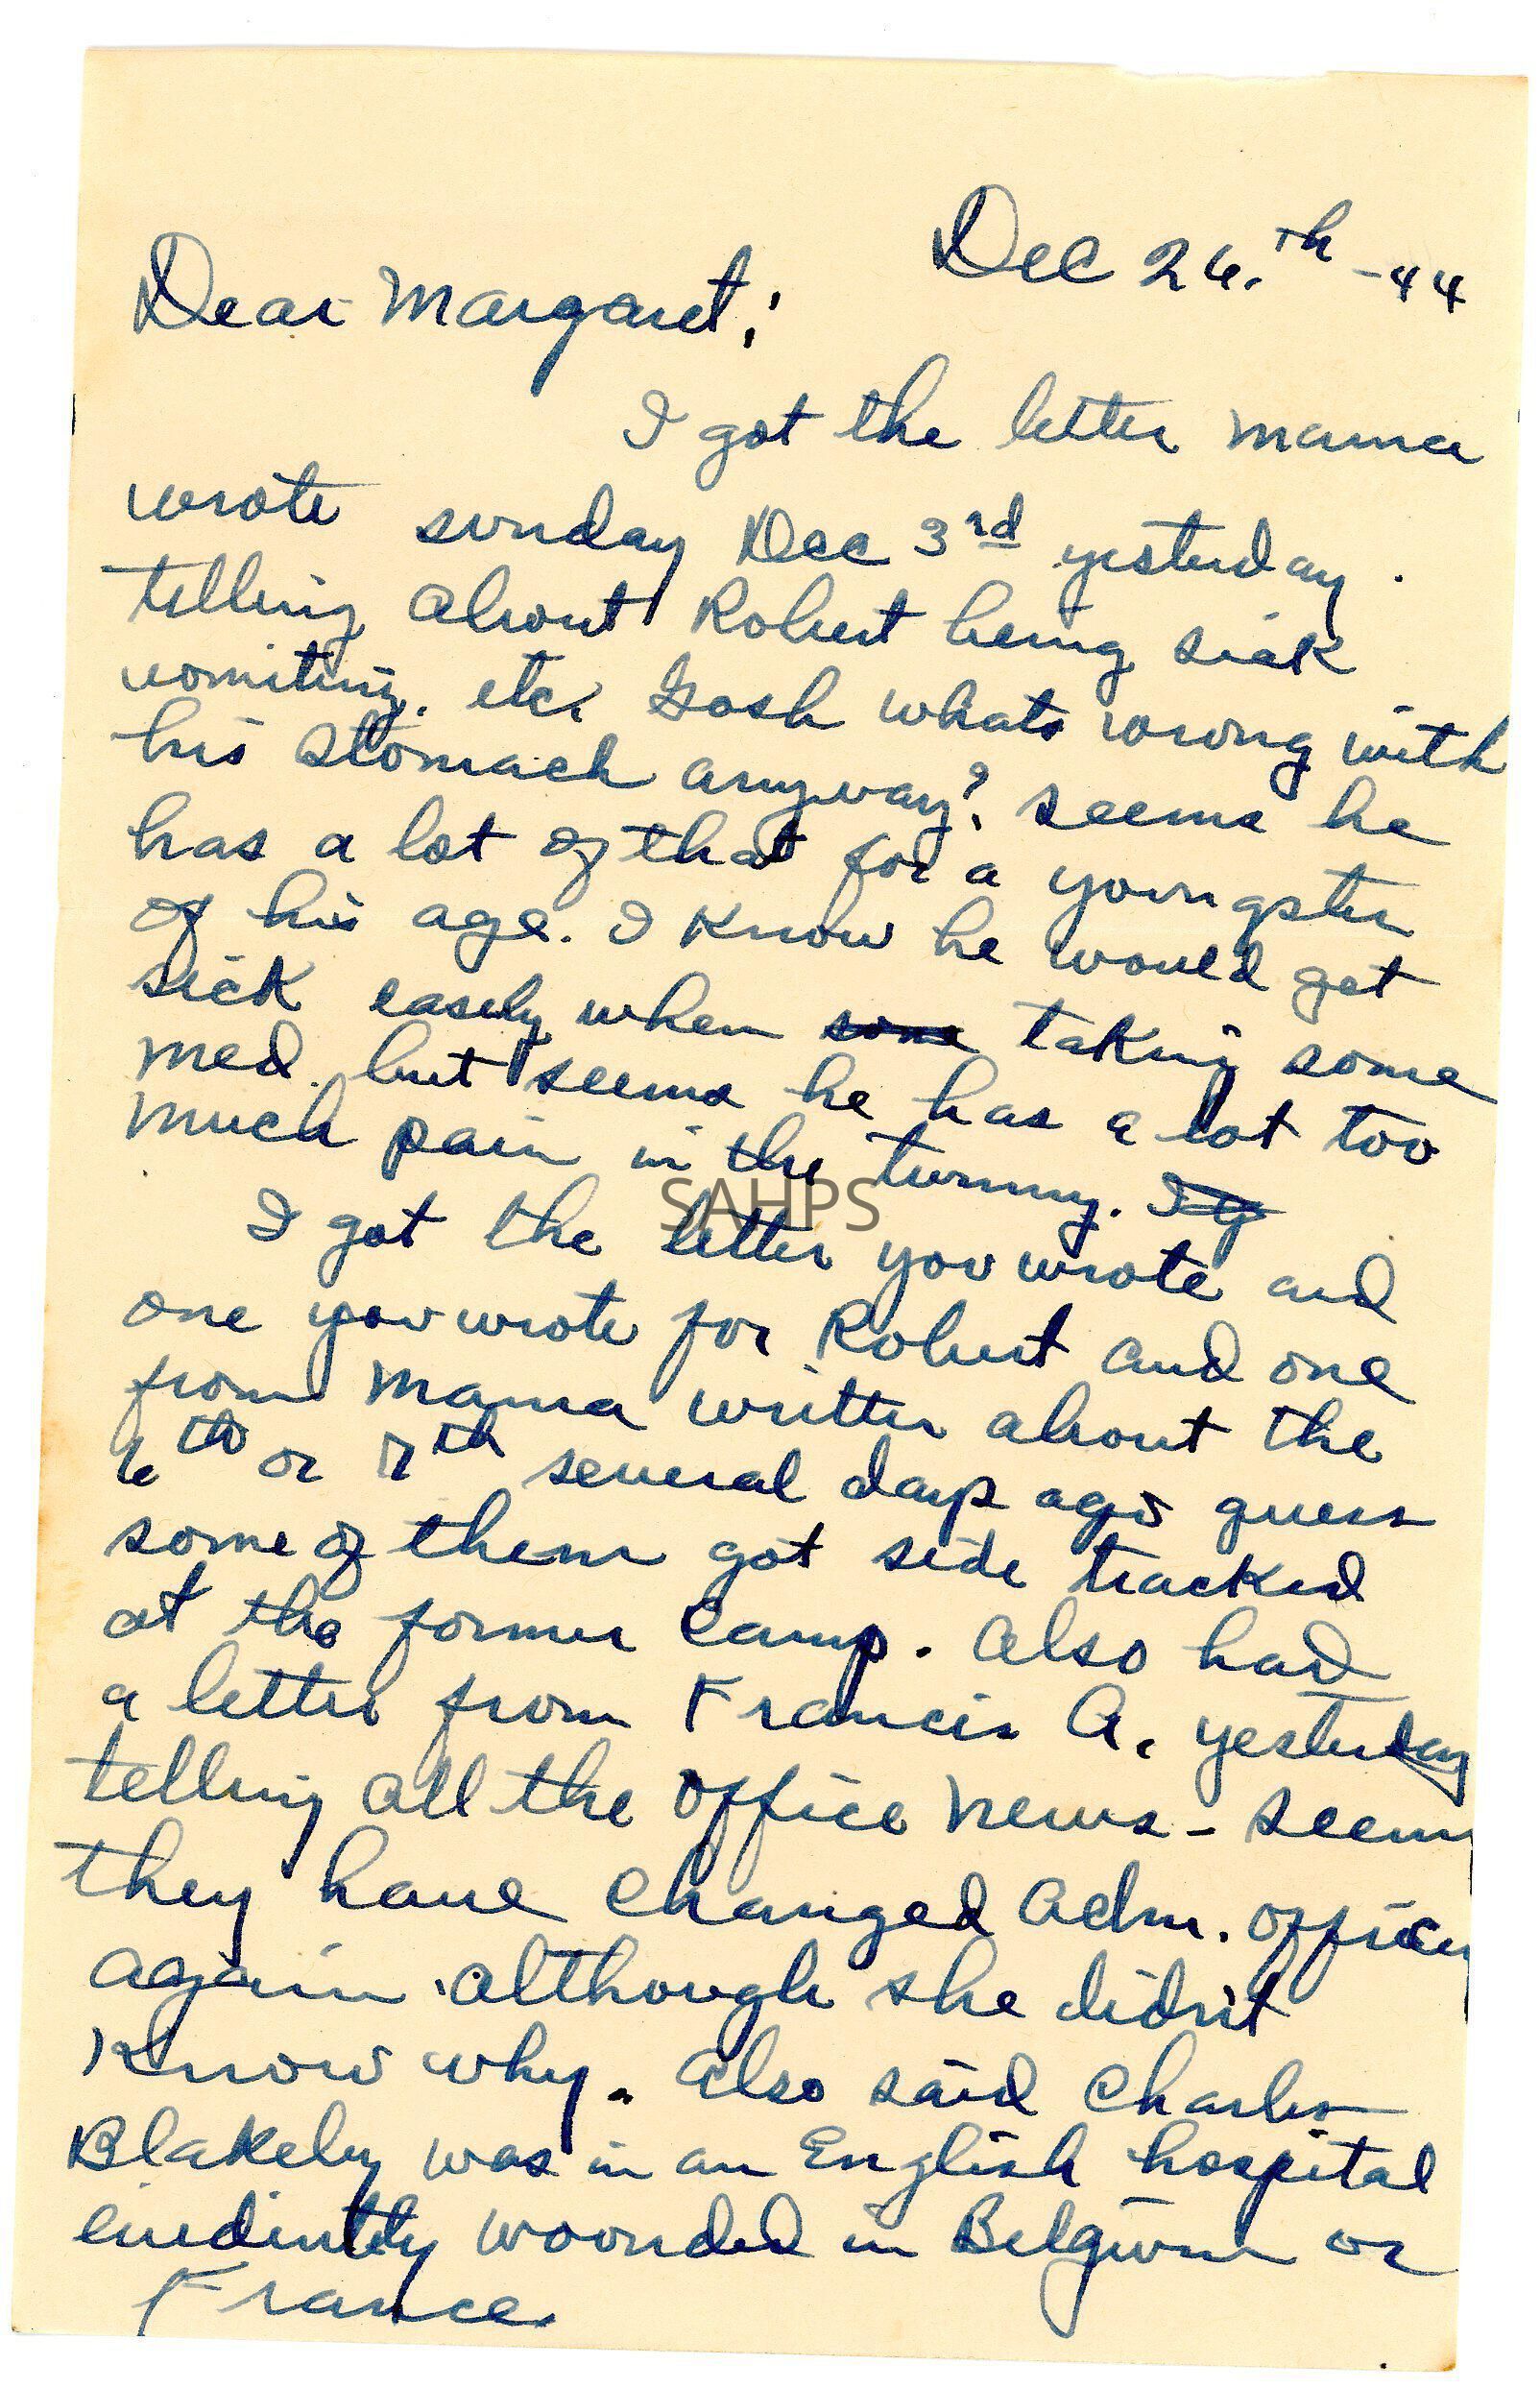 Dec 26.th -44
Dear Margaret;
I got the letter mama
wrote sunday Dec 3rd yesterday.
telling about Robert being sick
vomiting. etc. Gosh whats wrong with
his stomach anyway? seems he
has a lot of that for a youngster
of his age. I know he would get
sick easely when some taking some
med. but seems he has a lot too
much pain in the tummy. I g
SAHPS
I got the letter you wrote and
one you wrote for Robert and one
from mama written about the
6th or 7th several days ago guess
some of them got side tracked
at the former Camp. Also had
a letter from Francis A. yesterday
telling all the office news - seems
they have changed Adm. officer
again. although she didn't
know why. Also said Charles
Blakely was in an English hospital
evidintly woonded in Belgium or
France.